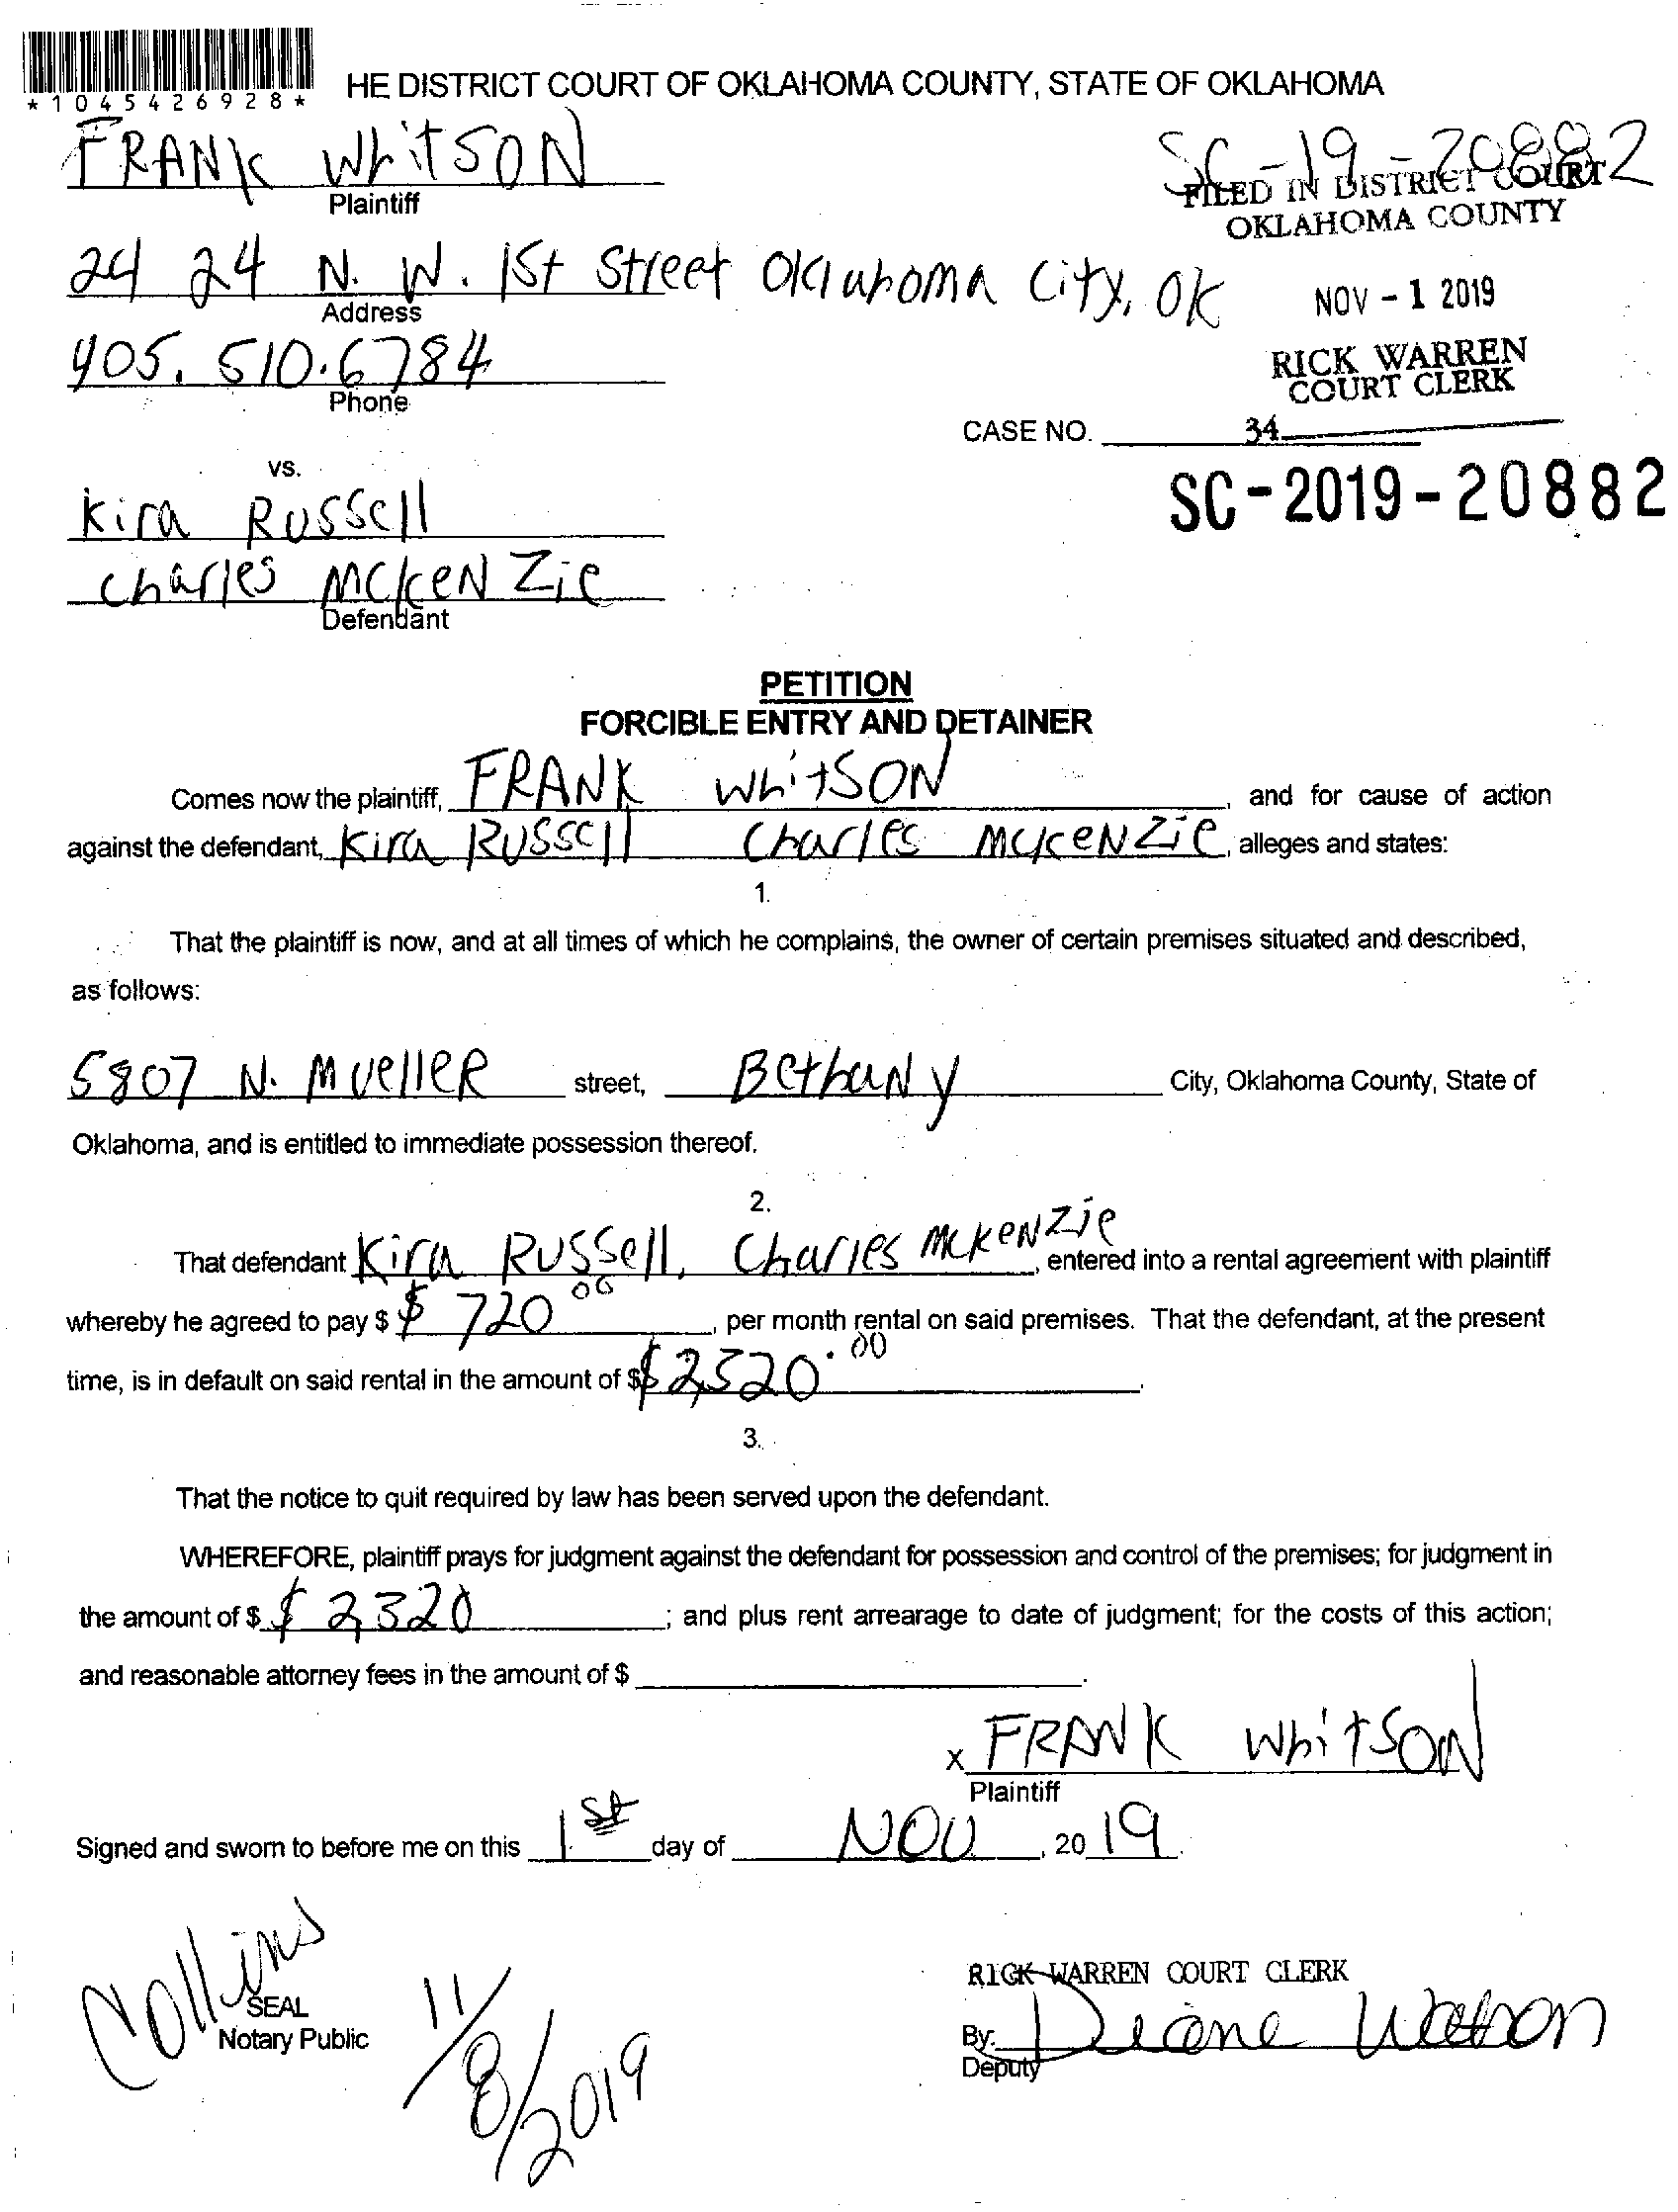 *1045426928*
HE DISTRICT COURT OF OKLAHOMA COUNTY, STATE OF OKLAHOMA
FRANK WhitSON
Plaintiff
SC-19-20882
FILED IN DISTRICT COURT
OKLAHOMA COUNTY
2424 N. W. 1St Street Oklahoma City, OK
Address
NOV - 1 2019
405. 510.6784
Phone
RICK WARREN
COURT CLERK
CASE NO. 34
vs.
SC-2019-20882
Kira Russell
Charles McKeNZie
Defendant
PETITION
FORCIBLE ENTRY AND DETAINER
Comes now the plaintiff, FRANK WhitSON, and for cause of action
against the defendant, Kira Russell Charles McKeNZie, alleges and states:
1.
That the plaintiff is now, and at all times of which he complains, the owner of certain premises situated and described,
as follows:
5807 N. MUelleR street, BethaNy City, Oklahoma County, State of
Oklahoma, and is entitled to immediate possession thereof.
2.
That defendant Kira Russell, Charles McKeNZie, entered into a rental agreement with plaintiff
whereby he agreed to pay $ $ 720 00, per month rental on said premises. That the defendant, at the present
time, is in default on said rental in the amount of $ $2,520.00.
3.
That the notice to quit required by law has been served upon the defendant.
WHEREFORE, plaintiff prays for judgment against the defendant for possession and control of the premises; for judgment in
the amount of $ $ 2,320; and plus rent arrearage to date of judgment; for the costs of this action;
and reasonable attorney fees in the amount of $.
x FRANK WhitSON
Plaintiff
Signed and sworn to before me on this 1st day of NOV, 2019.
Collins
SEAL
Notary Public
11/8/2019
RICK WARREN COURT CLERK
By: Diane Watson
Deputy